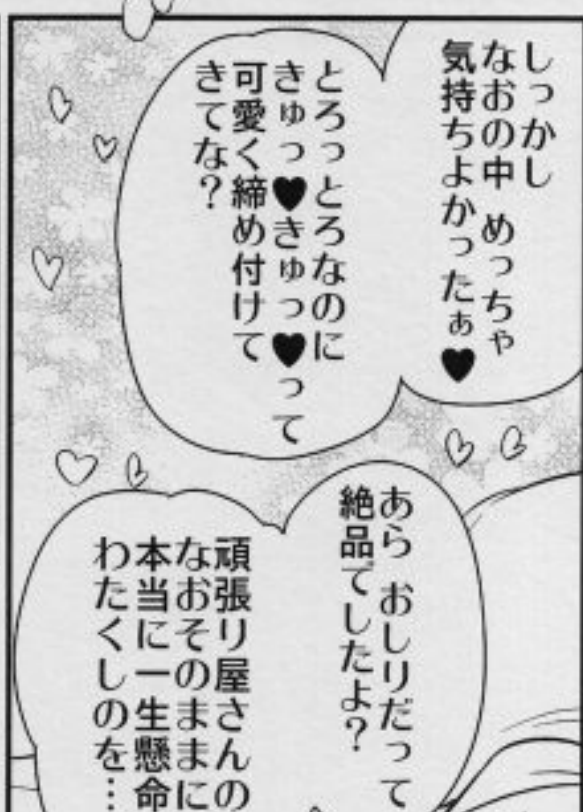 しっかし
なおの中 めっちゃ
気持ちよかったぁ♥
とろっとろなのに
きゅっ♥きゅっ♥って
可愛く締め付けて
きてな?
あら おしりだって
絶品でしたよ?
頑張り屋さんの
なおそのままに
本当に一生懸命
わたくしのを…